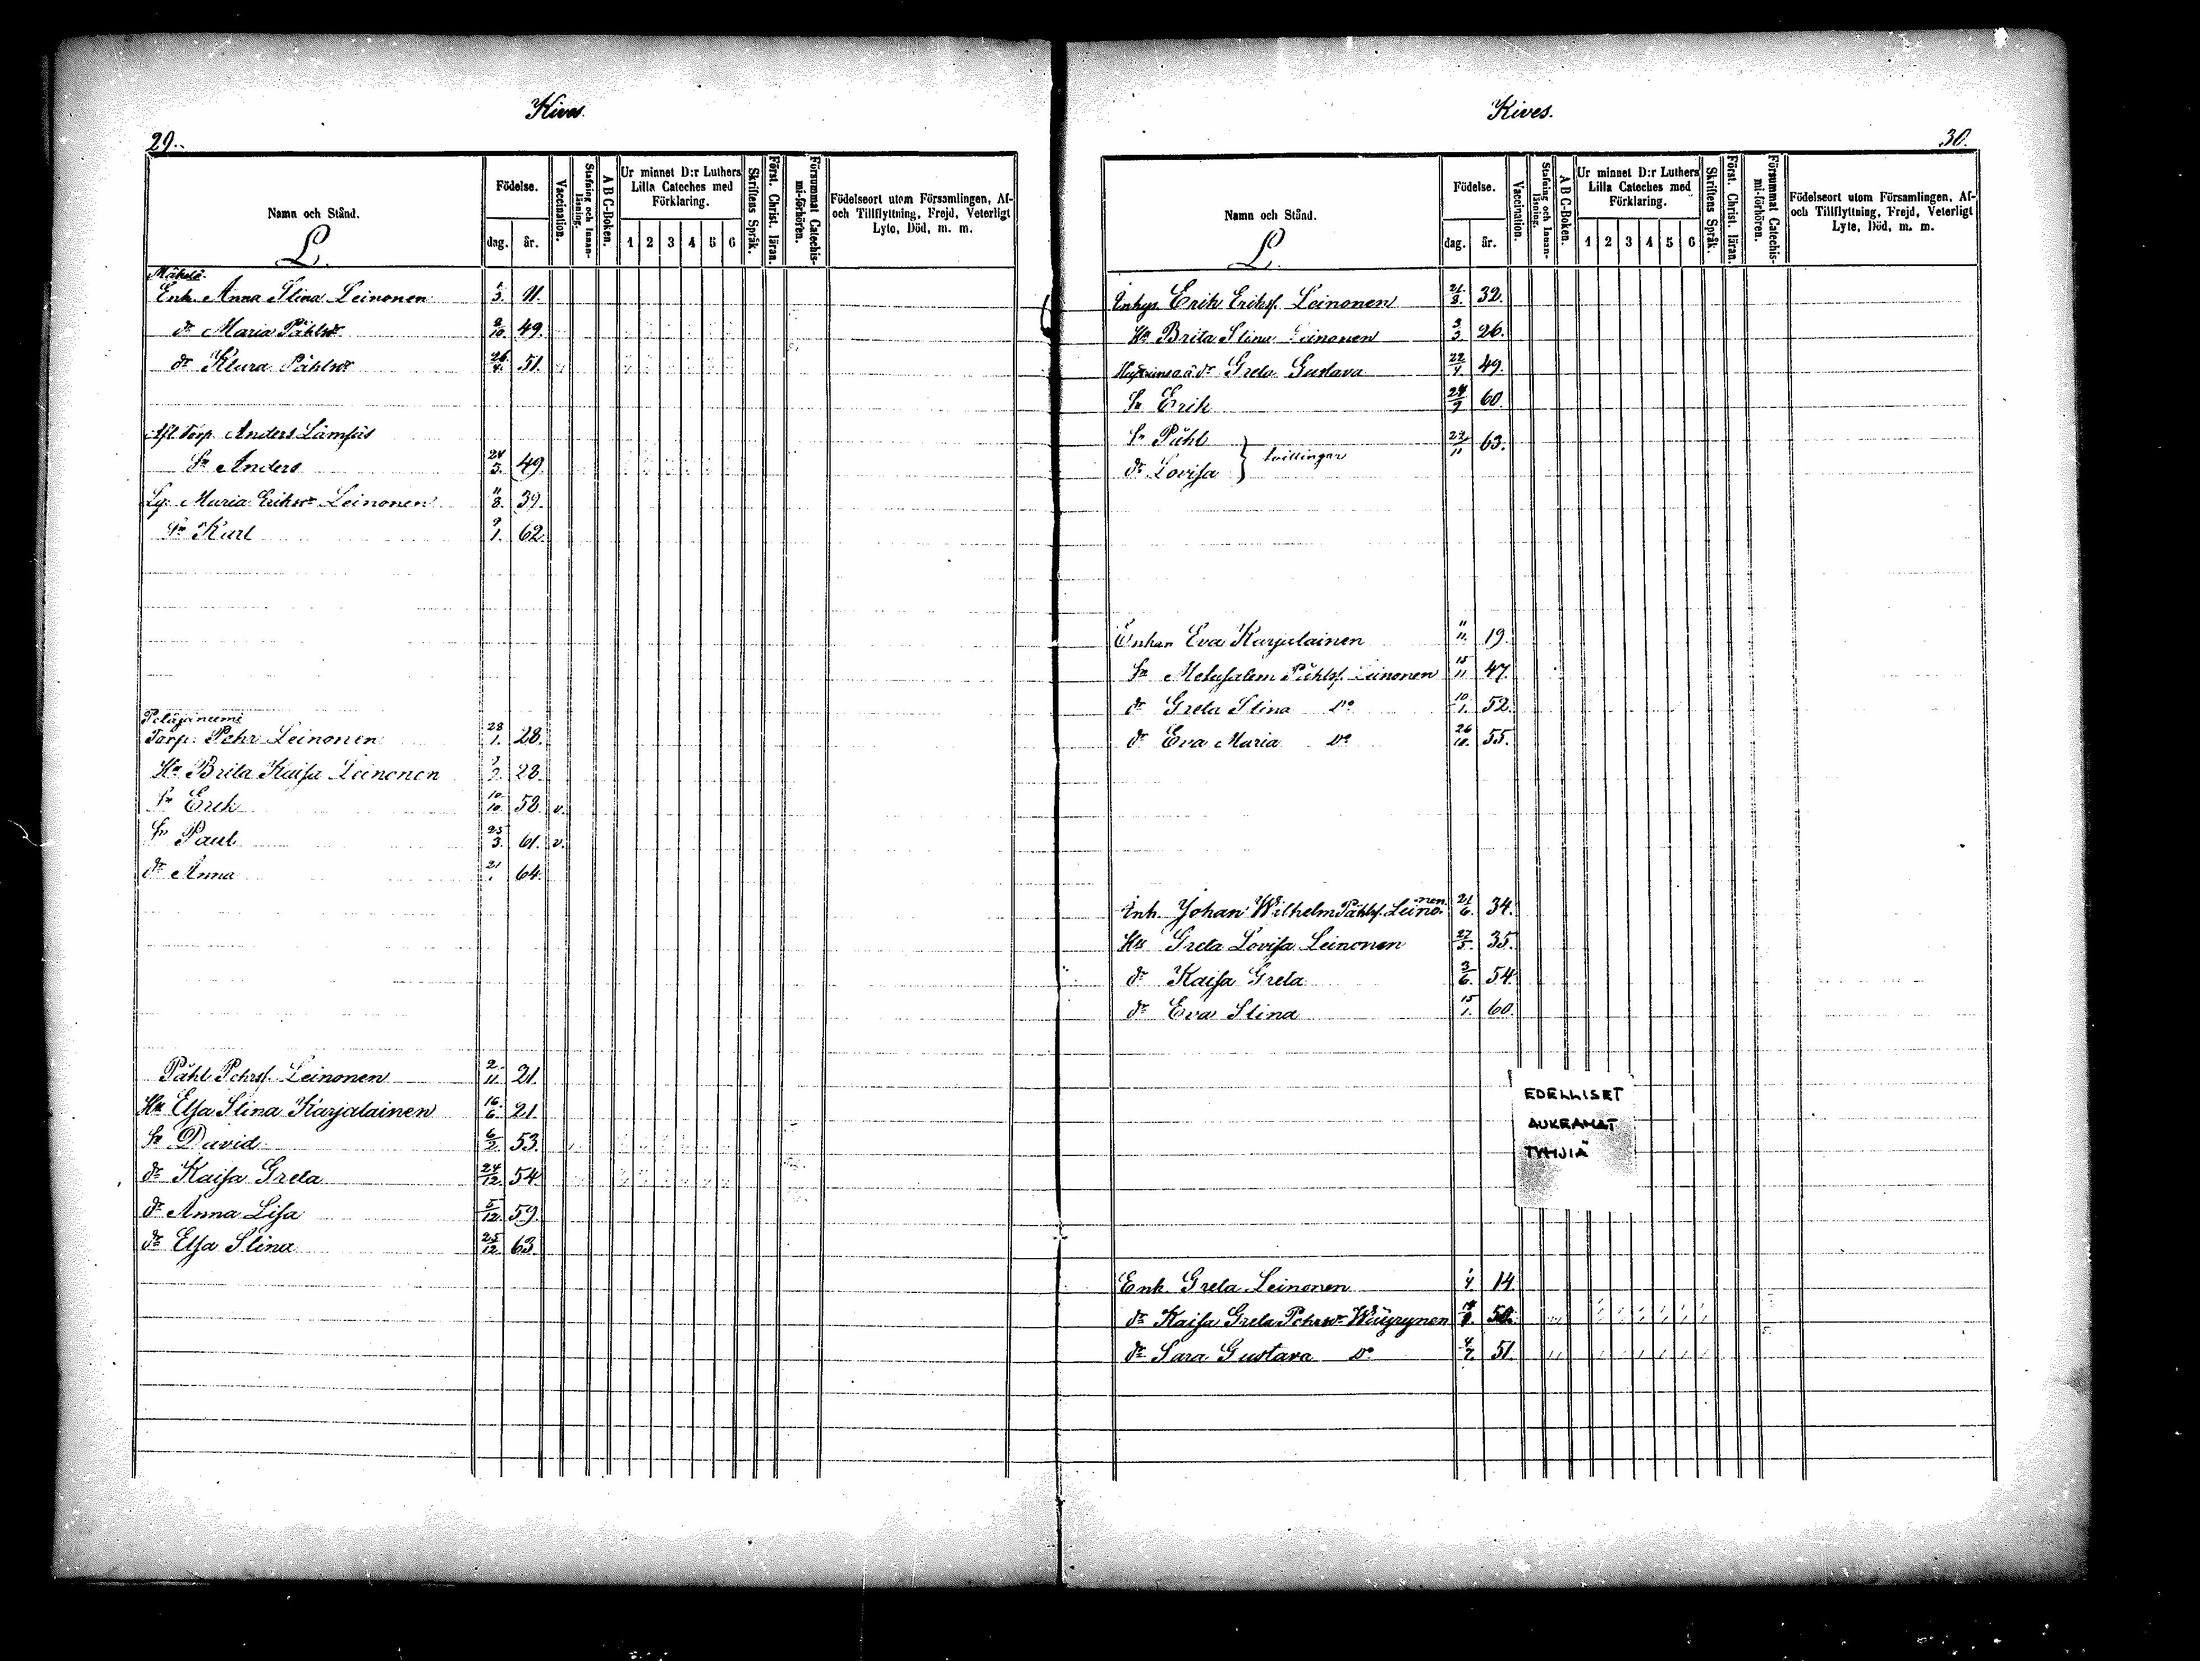 Kives.
29.
Namn och Stånd.
L.
Födelse.
dag. år.
Vaccination.
Stafning och Innan-läsning.
A B C-Boken.
Ur minnet D:r Luthers Lilla Cateches med Förklaring.
1 2 3 4 5 6
Skriftens Språk.
Först. Christ. läran.
Försummat Catechis-mi-förhören.
Födelseort utom Församlingen, Af- och Tillflyttning, Frejd, Veterligt Lyte, Död, m. m.
Mäkelä.
Enk. Anna Stina Leinonen 11.
dr Maria Påhlsdr 2/10. 49.
dr Klara Påhlsdr 26/4. 51.
Afl. Torp. Anders Lämsäs
Sn Anders 24/3. 49.
Maria Eriksdr Leinonen 11/8. 39.
Sn Karl 62.
Torp. Pehr Leinonen 28/1. 28.
Hu Brita Kaisa Leinonen 28.
Sn Erik 10/10. 58. v.
Sn Paul 25/3. 61. v.
dr Anna 64.
Påhl Pehrss. Leinonen 2/11. 21.
Hu Elsa Stina Karjalainen 16/6. 21.
Sn David 6/2. 53.
dr Kaisa Greta 24/12. 54.
dr Anna Lisa 5/12. 59.
dr Elsa Stina 25/12. 63.
Kives.
30.
Namn och Stånd.
L.
Födelse.
dag. år.
Vaccination.
Stafning och Innan-läsning.
A B C-Boken.
Ur minnet D:r Luthers Lilla Cateches med Förklaring.
1 2 3 4 5 6
Skriftens Språk.
Först. Christ. läran.
Försummat Catechis-mi-förhören.
Födelseort utom Församlingen, Af- och Tillflyttning, Frejd, Veterligt Lyte, Död, m. m.
Inhys. Erik Erikss. Leinonen 21/8. 32.
Hu Brita Stina Leinonen 3/3 26.
dr Greta Gustava 49.
Sn Erik 24/9 60.
Sn Påhl
dr Lovisa } tvillingar 63.
Enkan Eva Karjalainen 11/11. 19.
Sn Metusalem Påhlss. Leinonen 15/11 47.
dr Greta Stina Do 10/1. 52.
dr Eva Maria Do 26/10. 55.
Inh. Johan Wilhelm Påhlss. Leinonen. 21/6. 34.
Hu Greta Lovisa Leinonen 27/5. 35.
dr Kaisa Greta 3/6. 54.
dr Eva Stina 15/1. 60.
EDELLISET
AUKEAMAT
TYHJIÄ
Enk. Greta Leinonen 14.
dr Kaisa Greta Pehrsdr Wäyrynen 50.
dr Sara Gustava Do 51.